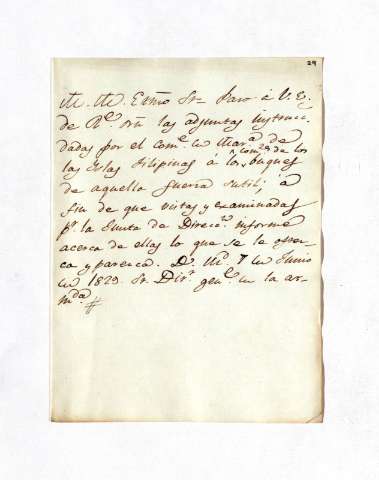 29
M. M. Exmo Sr= Paso á V. E.
de Rl orn las adjuntas Instruc.
dadas por el Come de Mara de
las Islas Filipinas á los Comtes de los buques
de aquella fuerza sutil; á
fin de que vistas y examinadas
pr la Junta de Direcn informe
acerca de ellas lo que se le ofrez-
ca y parezca. D. Md 7 de Junio
de 1829. Sr. Dir. genl de la ar-
mda #